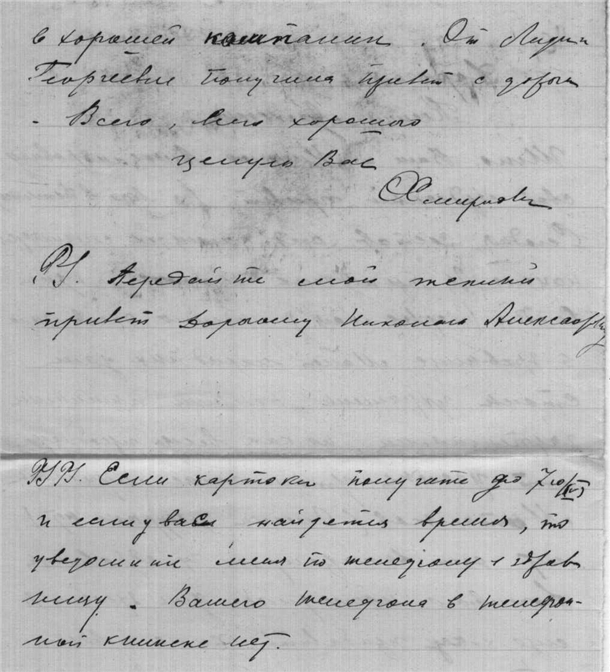 в хорошей компании. От Лидии
Георгиевны получила привет с дороги
. Всего, всего хорошего
целую Вас
Смирнова
P.S. Передайте мой теплый
привет дорогому Николаю Александр
P.S. P.S. Если карточки получите до
и если у вас найдется время, то
уведомите меня по телефону в здрав
ницу. Вашего телефона в телефон-
ной книжке нет.